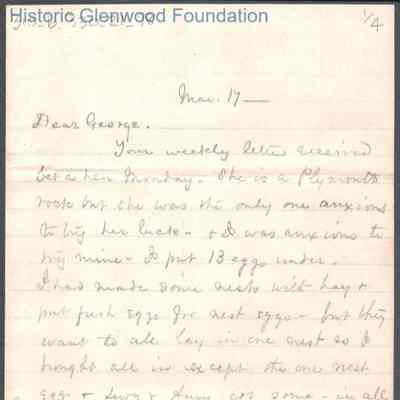 Historic Glenwood Foundation
1/4
Mar. 17 —
Dear George.
Your weekly letter received
set a hen Monday. She is a Plymouth
rock but she was the only one anxious
to try her luck - & I was anxious to
try mine - I put 13 eggs under.
I had made some nests with hay &
put fresh eggs for nest eggs - but they
want to all lay in one nest so I
brought all in except the one nest
egg & some - in all